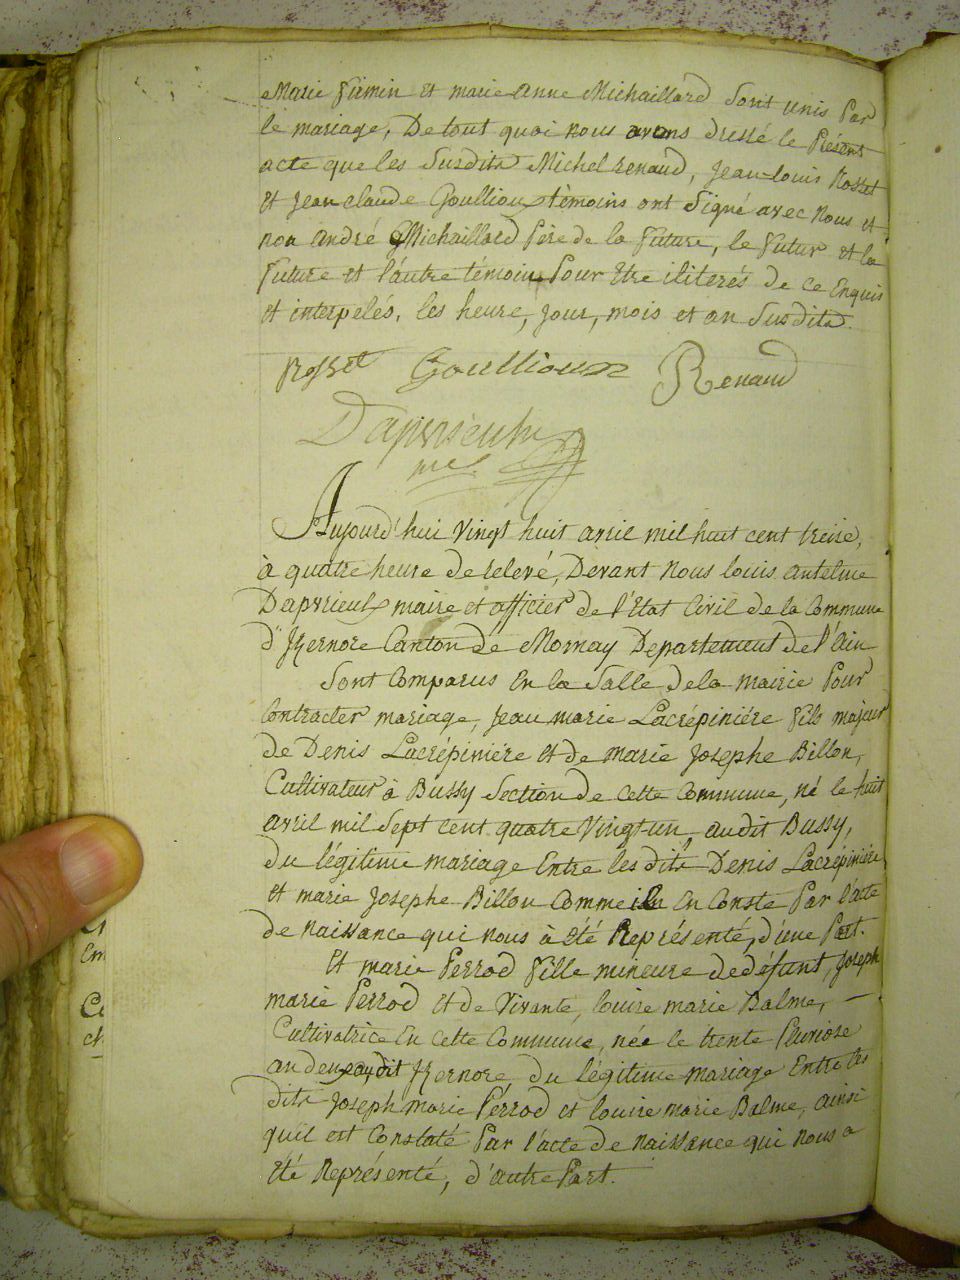 Marie Firmin et marie anne Michaillard Sont unis Par
le mariage, De tout quoi nous avons dressé le Présent
acte que les Susdits Michel renaud, Jean louis Rosset
et Jean claude Goullioux témoins ont Signé avec Nous et
non andré Michaillard Père de la Future, le Futur et la
Future et l'autre témoin Pour Etre iliterés de ce Enquis
et interpelés, les heure, Jour, mois et an Susdits.
Rosset Goullioux Renaud
Dapvrieulx
me
Aujourd'hui Vingt huit avril mil huit cent treise,
à quatre heure de relevé, Devant Nous louis antelme
Dapvrieulx maire et officier de l'Etat Civil de la Commune
d'Izernore Canton de Mornay Departement de l'Ain
Sont Comparus En la Salle de la mairie Pour
Contracter mariage, Jean marie Lacrépiniére Fils majeur
de Denis Lacrépiniére et de marie Josephe Billon,
Cultivateur à Bussy Section de cette Commune, né le huit
avril mil Sept cent quatre Vingt-un, audit Bussy,
du légitime mariage Entre les dits Denis Lacrépiniére
et marie Josephe Billon Comme il En Conste Par l'acte
de Naissance qui nous à été Représenté, d'une Part.
Et marie Perrod Fille mineure de défunt, Joseph
marie Perrod et de Vivante, louise marie Balme,
Cultivatrice En cette Commune, née le trente Pluviose
an deux, audit Izernore du légitime mariage Entre les
dits Joseph marie Perrod et louise marie Balme, ainsi
qu'il est Constaté Par l'acte de naissance qui nous a
été Représenté, d'autre Part.